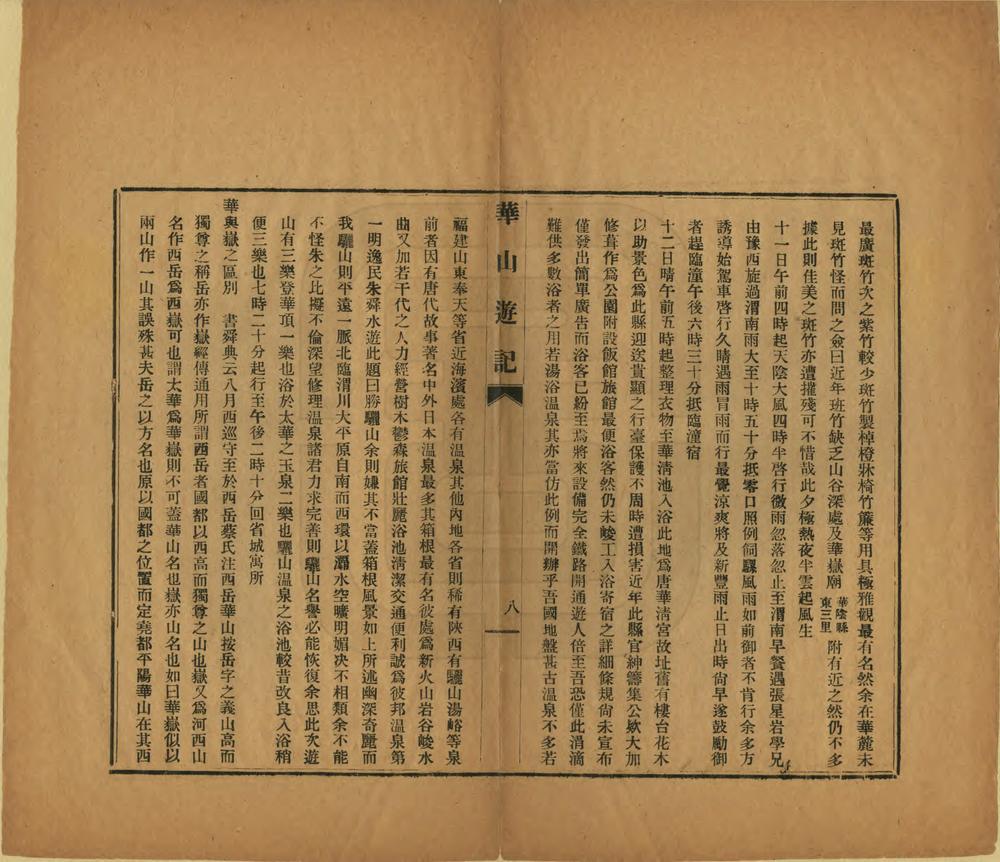 最廣斑竹次之紫竹較少斑竹製棹櫈牀椅竹簾等用具極雅觀最有名然余在華麓未
見斑竹怪而問之僉曰近年班竹缺乏山谷深處及華嶽廟華陰縣東三里附有近之然仍不多
據此則佳美之斑竹亦遭摧殘可不惜哉此夕極熱夜半雲起風生
十一日午前四時起天陰大風四時半啓行微雨忽落忽止至渭南早餐遇張星岩學兄
由豫西旋過渭南雨大至十時五十分抵零口照例飼騾風雨如前御者不肯行余多方
誘導始駕車啓行久晴遇雨冒雨而行最覺涼爽將及新豐雨止日出時尙早遂鼓勵御
者趕臨潼午後六時三十分抵臨潼宿
十二日晴午前五時起整理衣物至華淸池入浴此地爲唐華淸宮故址舊有樓台花木
以助景色爲此縣迎送貴顯之行臺保護不周時遭損害近年此縣官紳籌集公欵大加
修葺作爲公園附設飯館旅館最便浴客然仍未竣工入浴寄宿之詳細條規尙未宣布
僅發出簡單廣告而浴客已紛至焉將來設備完全鐵路開通遊人倍至吾恐僅此涓滴
難供多數浴者之用若湯浴温泉其亦當仿此例而開辦乎吾國地盤甚古温泉不多若
華山遊記
八
福建山東奉天等省近海濱處各有温泉其他內地各省則稀有陝西有驪山湯峪等泉
前者因有唐代故事著名中外日本温泉最多其箱根最有名彼處爲新火山岩谷峻水
曲又加若干代之人力經營樹木鬱森旅館壯麗浴池淸潔交通便利誠爲彼邦温泉第
一明逸民朱舜水遊此題曰勝驪山余則嫌其不當蓋箱根風景如上所述幽深奇麗而
我驪山則平遠一脈北臨渭川大平原自南而西環以灞水空曠明媚决不相類余不能
不怪朱之比擬不倫深望修理温泉諸君力求完善則驪山名譽必能恢復余思此次遊
山有三樂登華頂一樂也浴於太華之玉泉二樂也驪山温泉之浴池較昔改良入浴稍
便三樂也七時二十分起行至午後二時十分回省城寓所
華與嶽之區別　書舜典云八月西巡守至於西岳蔡氏注西岳華山按岳字之義山高而
獨尊之稱岳亦作嶽經傳通用所謂西岳者國都以西高而獨尊之山也嶽又爲河西山
名作西岳爲西嶽可也謂太華爲華嶽則不可蓋華山名也嶽亦山名也如曰華嶽似以
兩山作一山其誤殊甚夫岳之以方名也原以國都之位置而定堯都平陽華山在其西